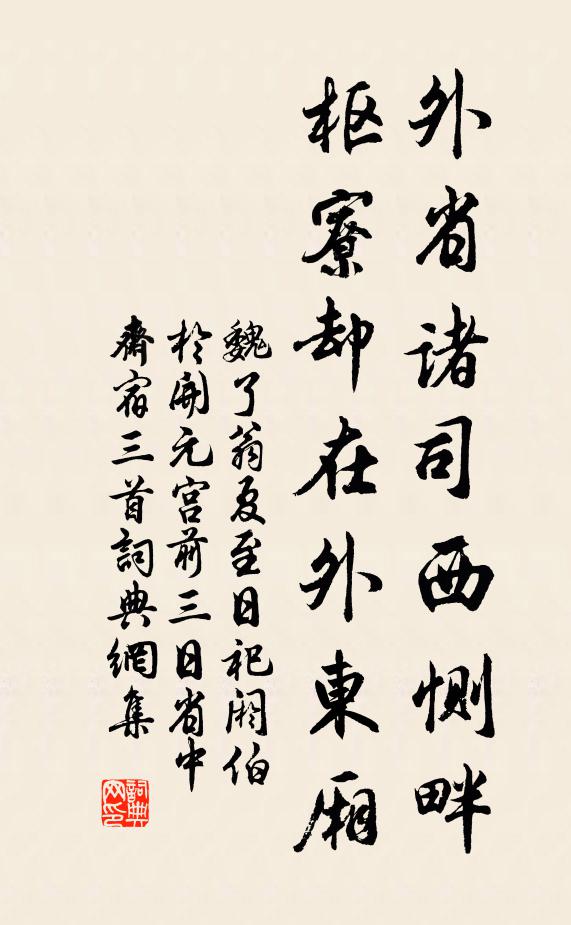 外省諸司西惻畔
枢寮却在外東厢
魏了翁夏至日祀閼伯
於開元宮前三日省中
齋宿三首詞典網集
詞典网印